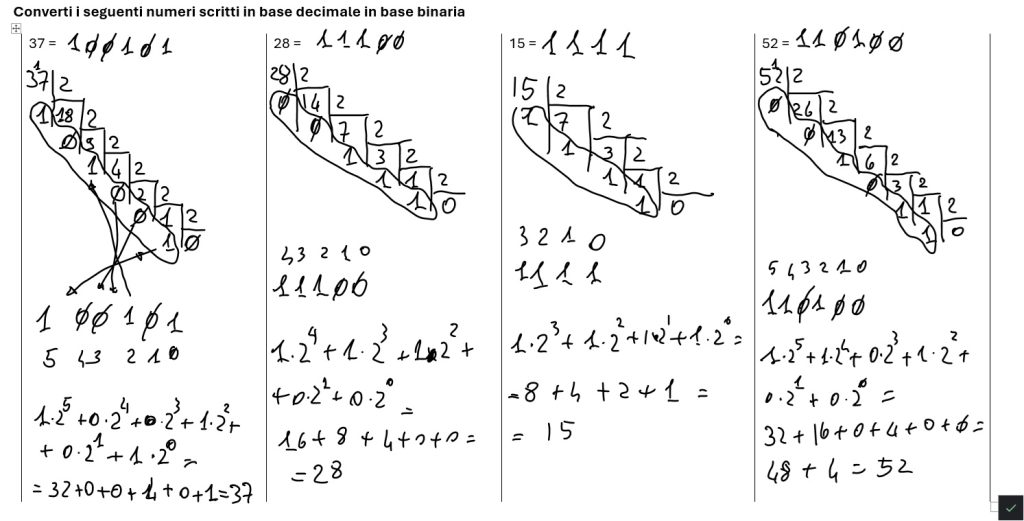 Converti i seguenti numeri scritti in base decimale in base binaria
37 = 100101
37 2
1 18 2
0 9 2
1 4 2
0 2 2
0 1 2
1 0
1 00 1 0 1
5 43 2 1 0
1·2^5 + 0·2^4 + 0·2^3 + 1·2^2 +
+ 0·2^1 + 1·2^0 =
= 32+0+0+4+0+1=37
28 = 11100
28 2
0 14 2
0 7 2
1 3 2
1 1 2
1 0
43 2 1 0
11100
1·2^4 + 1·2^3 + 1·2^2 +
+0·2^1 + 0·2^0 =
16+8+4+0+0=
=28
15 = 1111
15 2
1 7 2
1 3 2
1 1 2
1 0
3 2 1 0
1111
1·2^3 + 1·2^2 + 1·2^1 + 1·2^0 =
=8+4+2+1 =
= 15
52 = 110100
52 2
0 26 2
0 13 2
1 6 2
0 3 2
1 1 2
1 0
5 43 2 1 0
110100
1·2^5 + 1·2^4 + 0·2^3 + 1·2^2 +
0·2^1 + 0·2^0 =
32+16+0+4+0+0=
48+4=52